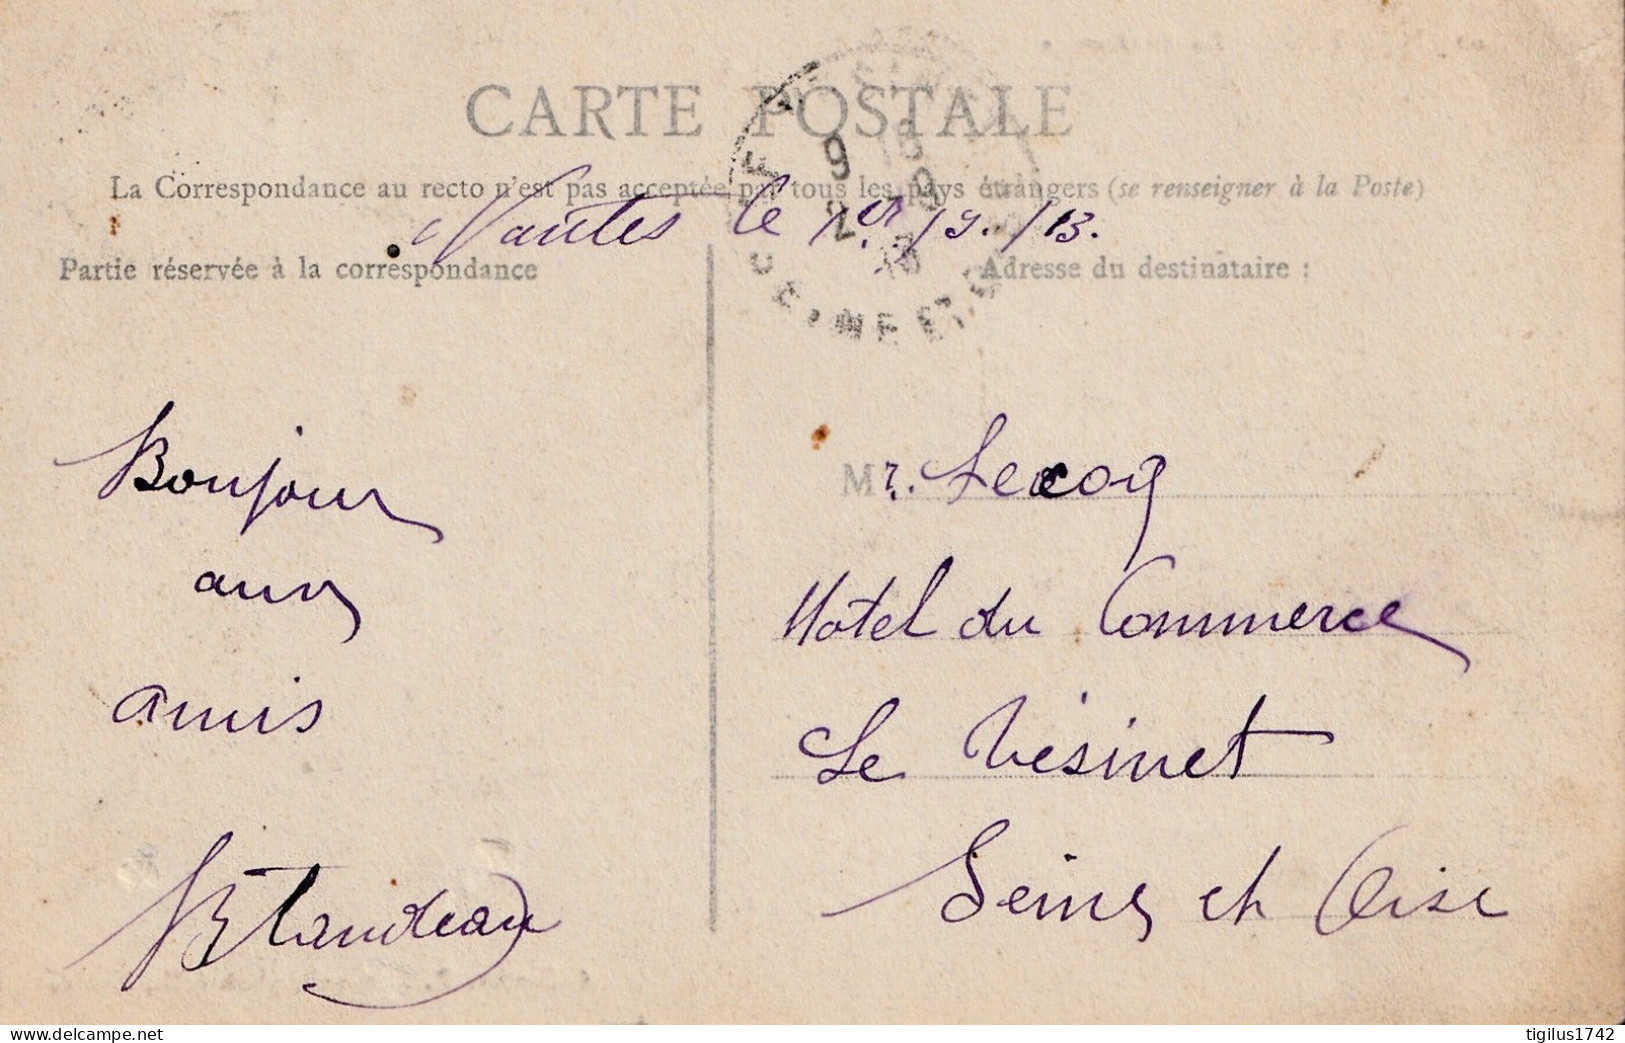 CARTE POSTALE
La Correspondance au recto n'est pas acceptée par tous les pays étrangers (se renseigner à la Poste)
Nantes le 1er/9./13.
Partie réservée à la correspondance
Adresse du destinataire :
Bonjour
aux
amis
Blandeau
Mr. Lecoq
Hotel du Commerce
Le Vésinet
Seine et Oise
delcampe.net
tigilus1742